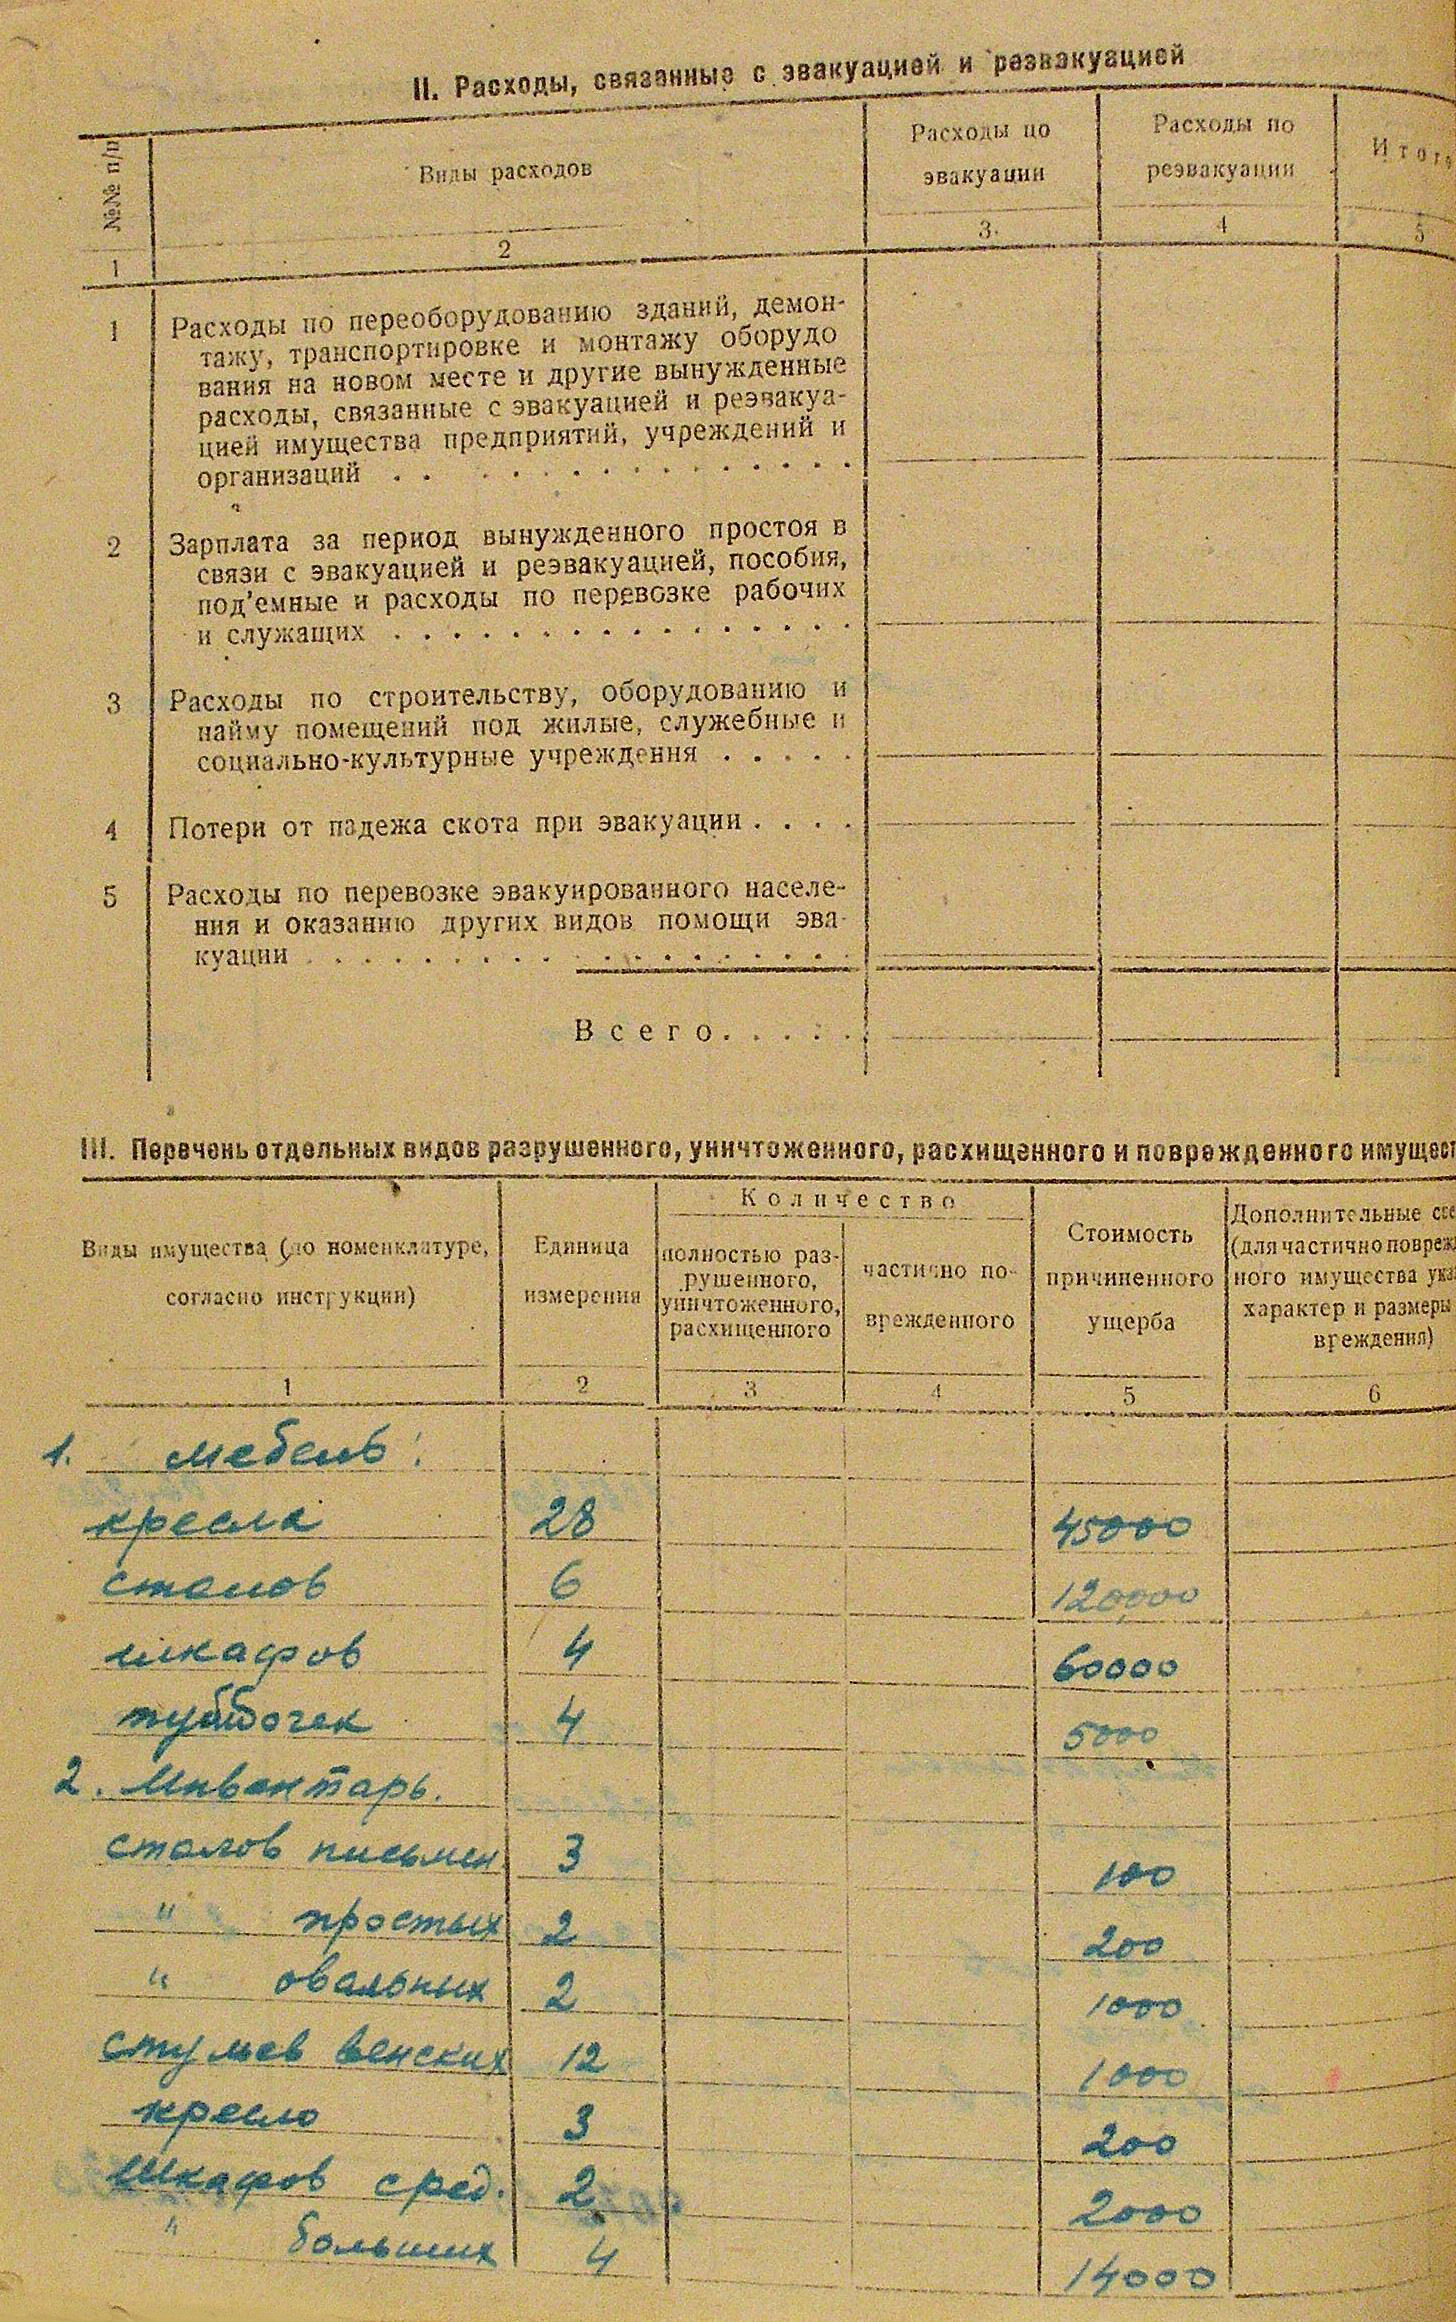 II. Расходы, связанные с эвакуацией и реэвакуацией
№№ п/п
Виды расходов
Расходы по
эвакуации
Расходы по
реэвакуации
Итого
1
2
3
4
5
1 Расходы по переоборудованию зданий, демон-
тажу, транспортировке и монтажу оборудо
вания на новом месте и другие вынужденные
расходы, связанные с эвакуацией и реэвакуа-
цией имущества предприятий, учреждений и
организаций . . . . . . . . . . . . . . .
2 Зарплата за период вынужденного простоя в
связи с эвакуацией и реэвакуацией, пособия,
под'емные и расходы по перевозке рабочих
и служащих . . . . . . . . . . . . . . . .
3 Расходы по строительству, оборудованию и
найму помещений под жилые, служебные и
социально-культурные учреждения . . . . .
4 Потери от падежа скота при эвакуации . . . .
5 Расходы по перевозке эвакуированного населе-
ния и оказанию других видов помощи эва-
куации . . . . . . . . . . . . . . . . . . .
Всего. . . . .
III. Перечень отдельных видов разрушенного, уничтоженного, расхищенного и поврежденного имущест
Виды имущества (по номенклатуре,
согласно инструкции)
Единица
измерения
Количество
полностью раз-
рушенного,
уничтоженного,
расхищенного
частично по-
врежденного
Стоимость
причиненного
ущерба
Дополнительные све
(для частично повреж
ного имущества ука
характер и размеры
вреждения)
1 2 3 4 5 6
1. мебель:
кресла 28 45000
столов 6 120000
шкафов 4 60000
тумбочек 4 5000
2. Инвентарь.
столов письмен. 3 100
" простых 2 200
" овальных 2 1000
стульев венских 12 1000
кресло 3 200
Шкафов сред. 2 2000
" больших 4 14000